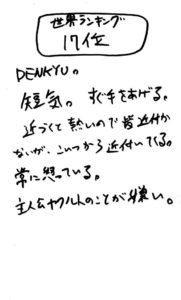 世界ランキング
17位
DENKYU。
短気。すぐ手をあげる。
近づくと熱いので皆近付か
ないが、こいつから近付いてくる。
常に怒っている。
主人公ヤクルトのことが嫌い。